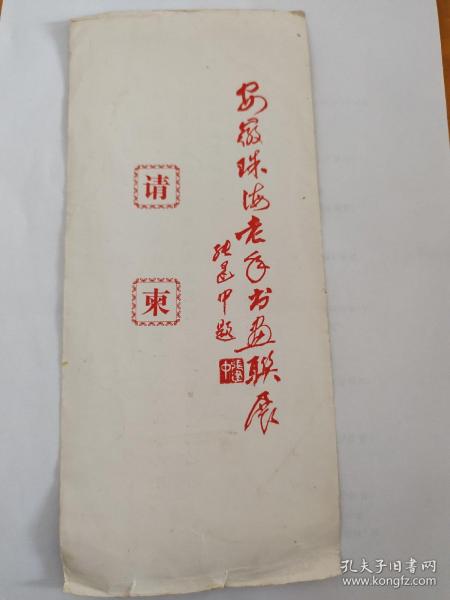 安徽珠海老年书画联展
张建中题
张建中
请柬
孔夫子旧书网
www.kongfz.com